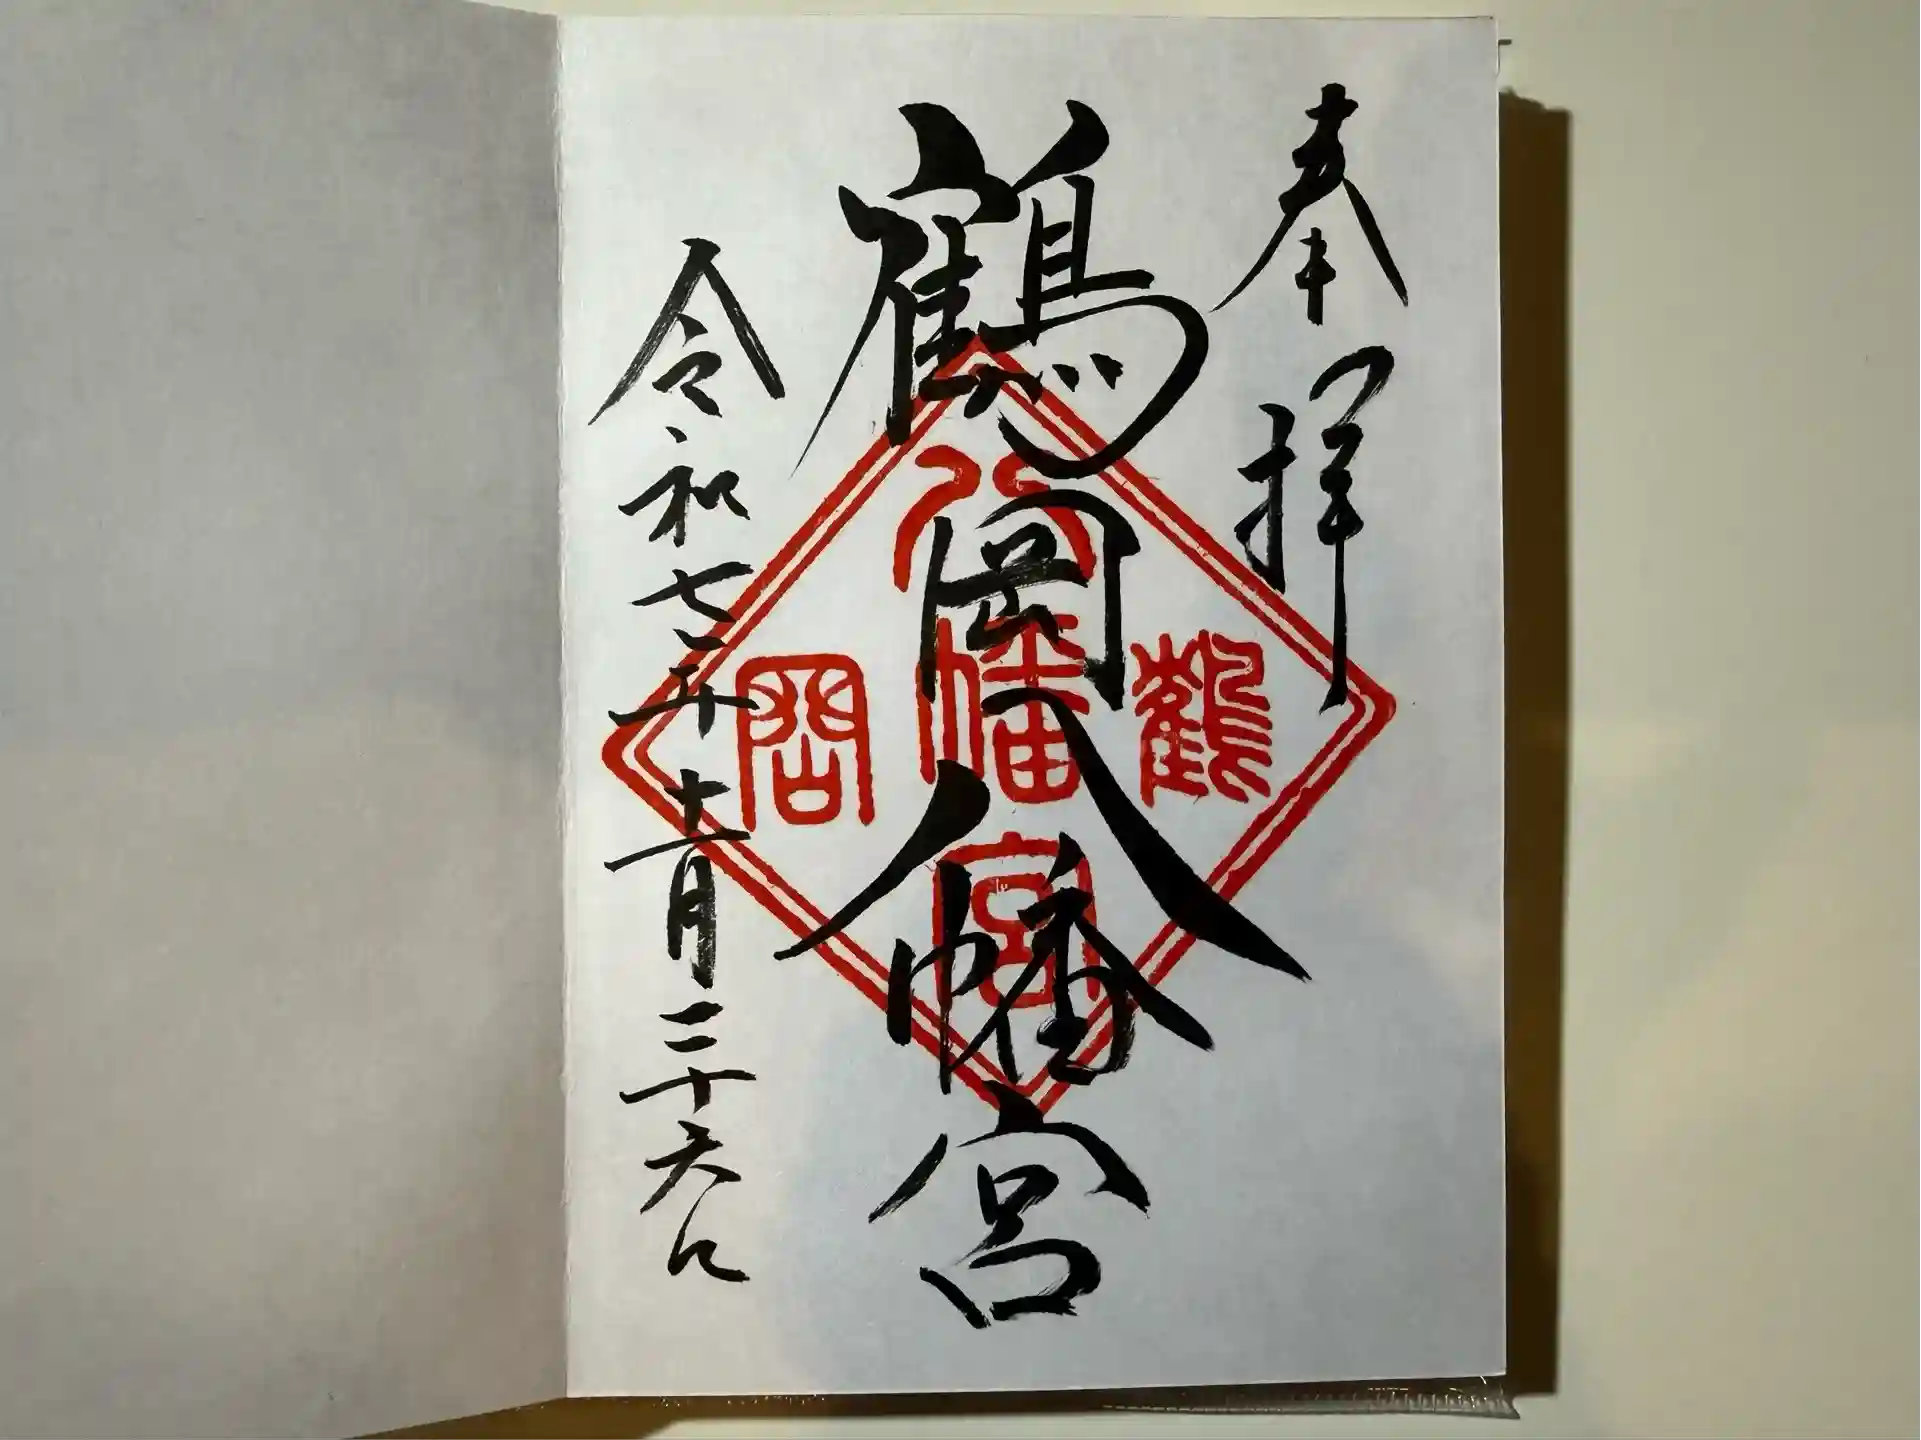 奉拝
鶴岡八幡宮
令和七年十一月二十六日
鶴岡八幡宮